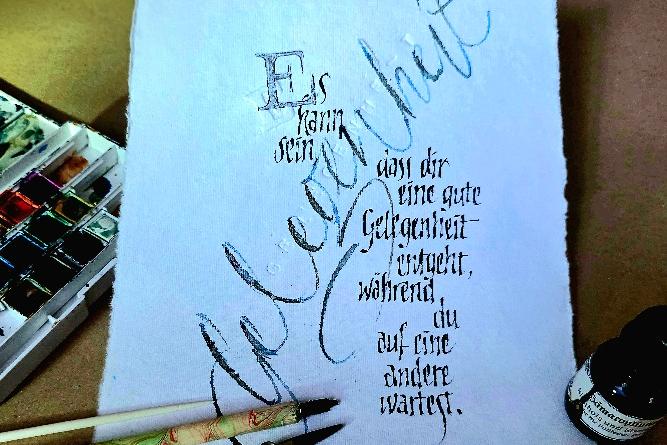 Es
kann
sein
dass dir
eine gute
Gelegenheit
entgeht,
während
du
auf eine
andere
wartest.
Gelegenheit